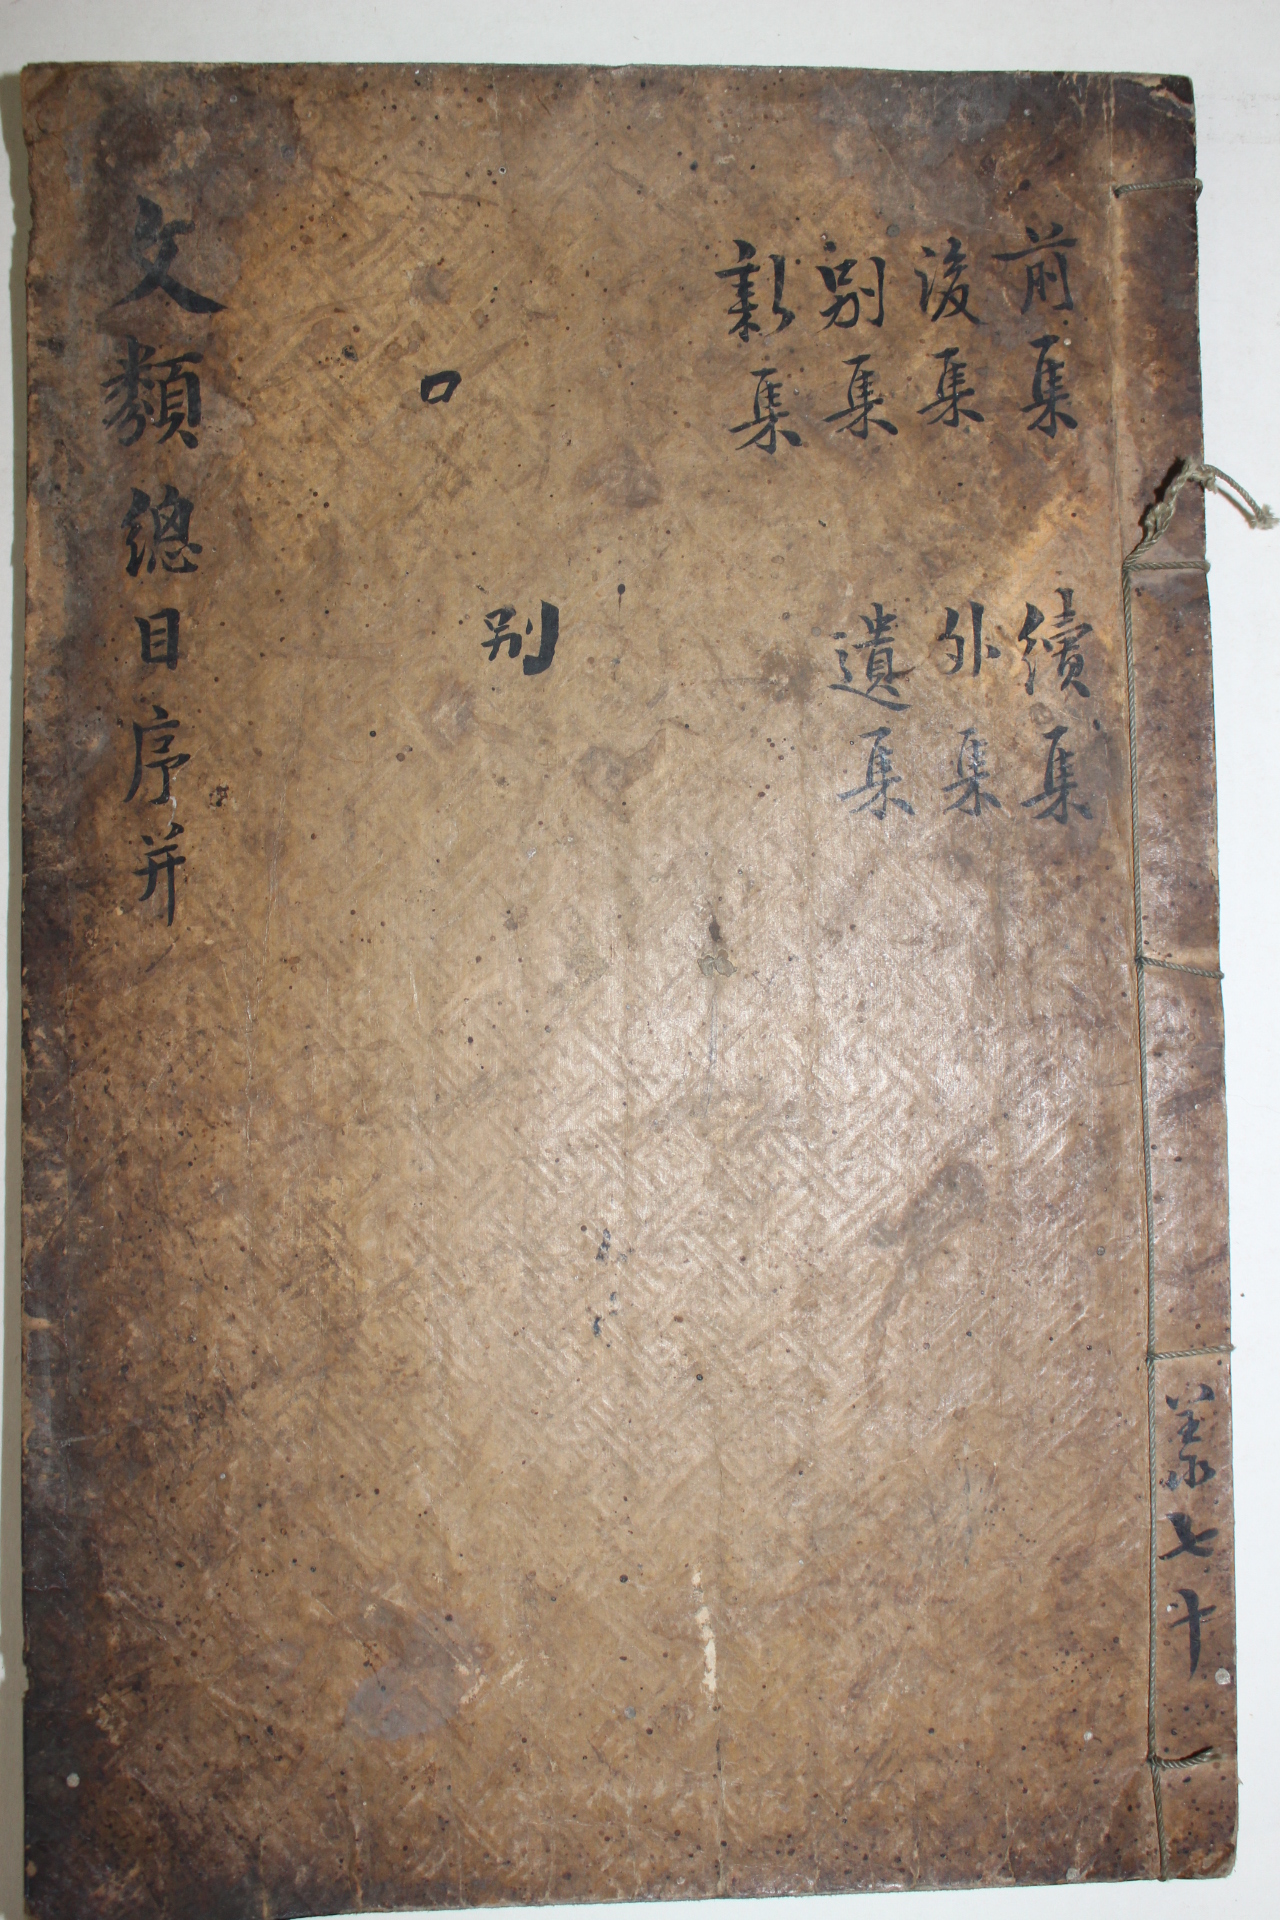 前集
後集
別集
新集
續集
外集
遺集
口
别
文類總目序并
共七十